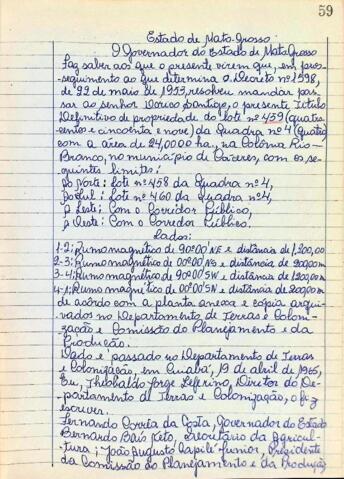 59
Estado de Mato-Grosso
O Governador do Estado de Mato Grosso
Faz saber aos que o presente virem que, em pros-
-seguimento ao que determina o Decreto nº 1598,
de 22 de maio de 1953, resolveu mandar pas-
sar ao senhor Dorico Pontigo, o presente Titulo
Definitivo de propriedade do lote nº 459 (quatro-
centos e cincoenta e nove) da Quadra nº 4 (quatro)
com a área de 24,0000 ha., na Colônia Rio-
Branco, no município de Cáceres, com os se-
guintes limites:
Ao Norte: Lote nº 458 da Quadra nº 4,
Ao Sul: Lote nº 460 da Quadra nº 4,
A Leste: Com o Corredor Público,
A Oeste: Com o Corredor Público,
Lados:
1-2; Rumo magnético de 90º00'NE e distância de 1.200,00
2-3; Rumo magnético de 00º00' e distância de 200,00 m
3-4; Rumo magnético de 90º00'SW e distância de 1.200,00 m
4-1; Rumo magnético de 00º00' e distância de 200,00 m
de acordo com a planta anexa e cópia arqui-
vados no Departamento de Terras e Coloni-
zação e Comissão do Planejamento e da
Produção.
Dado e passado no Departamento de Terras
e Colonização, em Cuiabá, 19 de abril de 1965,
Eu, Jorge, Diretor do De-
partamento de Terras e Colonização, o fiz
escrever.
Fernando Corrêa da Costa, Governador do Estado
Bernardo Bais Neto, Secretário da Agricul-
tura; João Augusto Capilé Junior, Presidente
da Comissão do Planejamento e da Produção